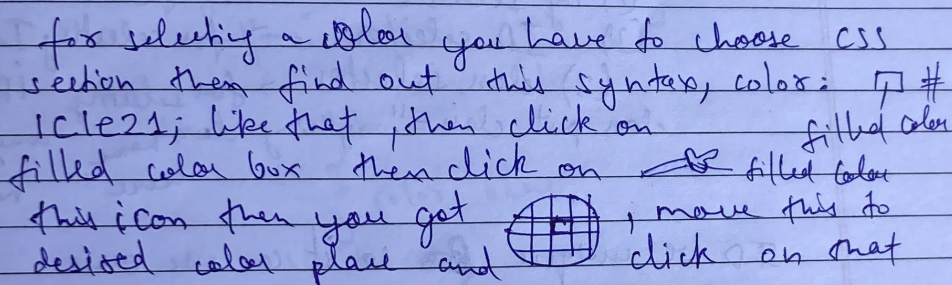 for selecting a color you have to choose css
section then find out this syntax, color: #
1C1e21; like that, then click on filled color
filled color box then click on filled color
this icon then you got , move this to
desired color place and click on that